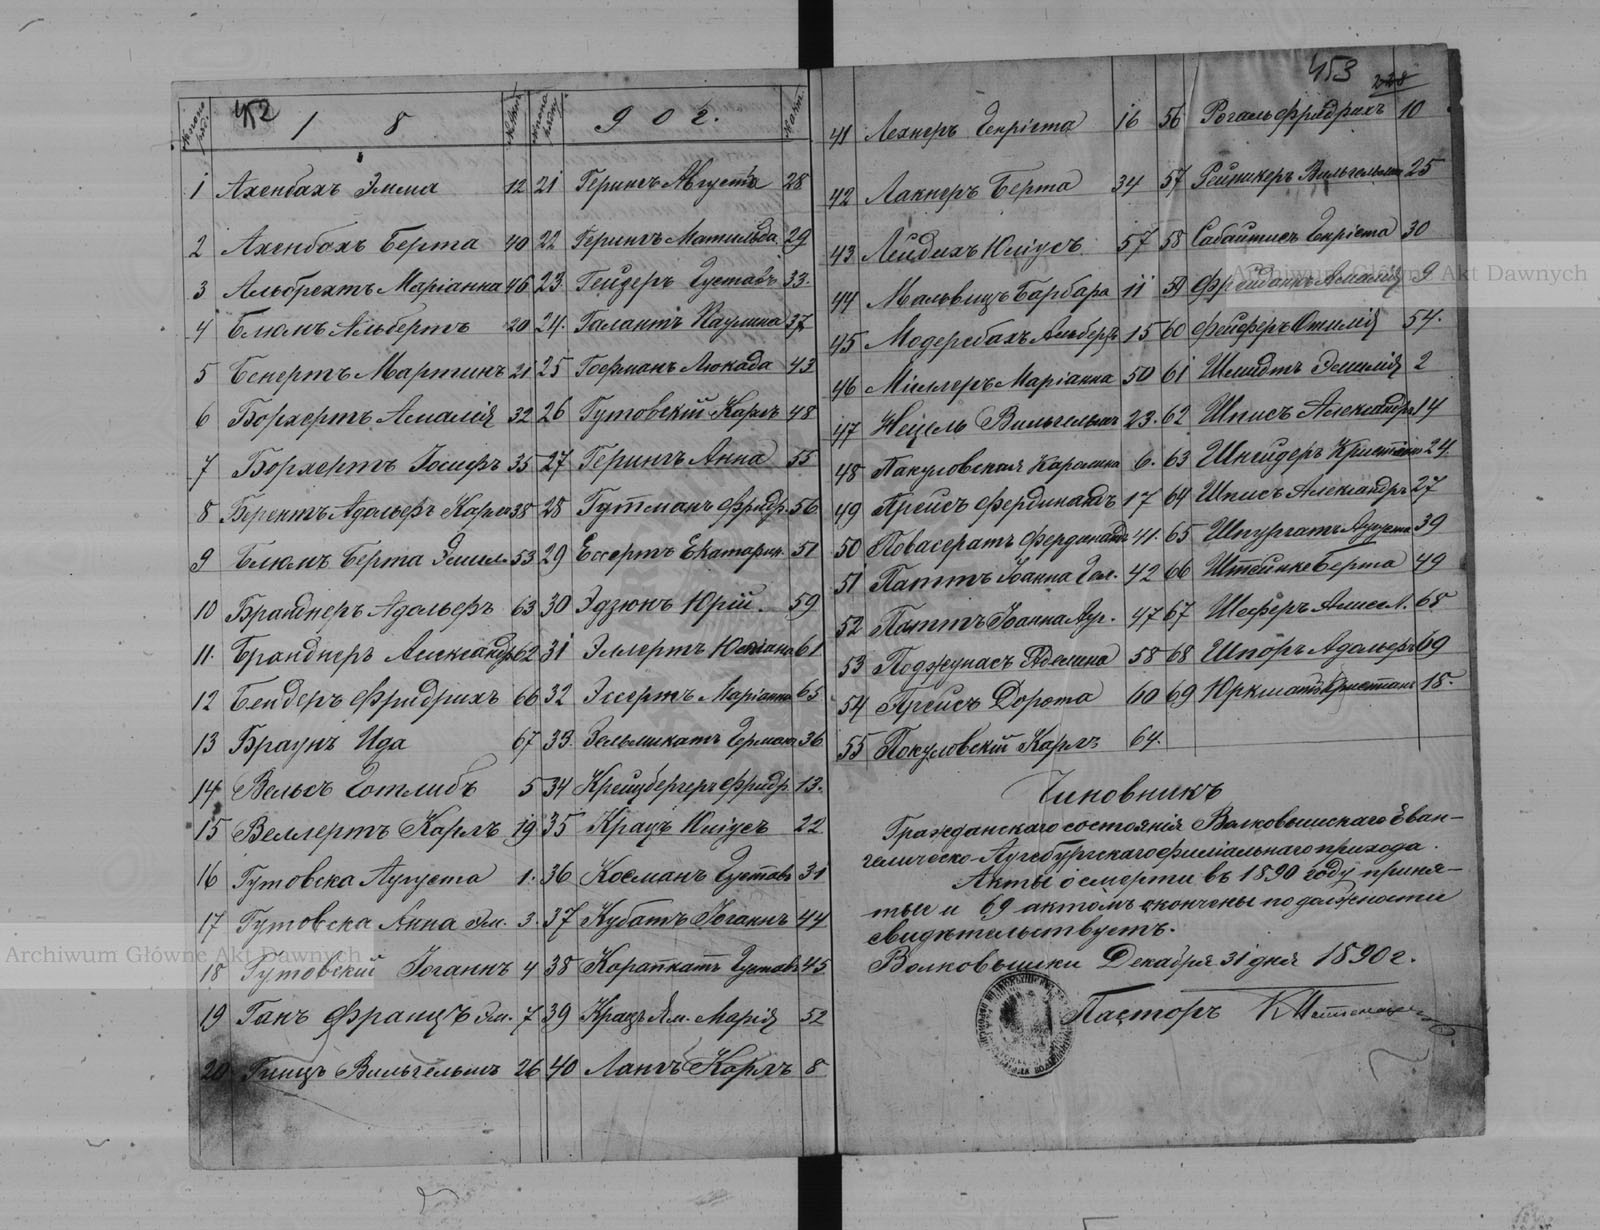 452
1 8 90 г.
1 Ахенбахъ Эмма 12
2 Ахенбахъ Берта 40
3 Альбрехтъ Маріанна 46
4 Блюмъ Альбертъ 20
5 Бенертъ Мартинъ 21
6 Борхертъ Амалія 32
7 Борхертъ Іосифъ 35
8 Берентъ Адольфъ Карлъ 38
9 Блюмъ Берта Эмил. 53
10 Бранднеръ Адольфъ 63
11 Бранднеръ Александръ 62
12 Бендеръ Фридрихъ 66
13 Браунъ Ида 67
14 Вельсъ Готлибъ 5
15 Веллертъ Карлъ 19
16 Гутовска Аугуста 1.
17 Гутовска Анна Эм. 3.
18 Гутовскій Іоганнъ 4
19 Ганъ Францъ Эм. 7
20 Гинцъ Вильгельмъ 26
21 Герингъ Августа 28
22 Герингъ Матильда 29
23 Гейдеръ Густавъ 33.
24. Галантъ Паулина 37
25 Гофманъ Люкада 43
26 Гутовскій Карлъ 48
27 Герингъ Анна 55
28 Гутманъ Фридр. 56
29 Ессертъ Екатерин. 51
30 Эдзюнъ Юрій. 59
31 Эллертъ Юліана 61
32 Эссертъ Маріанна 65
33 Зельмикатъ Герман 36
34 Крейцбергеръ Фридр 13.
35 Крацъ Юліусъ 22
36 Косманъ Густавъ 31
37 Кубатъ Іоганнъ 44
38 Карапкатъ Густавъ 45
39 Крацъ Эм. Марія 52
40 Лангъ Карлъ 8
453
228
41 Лехнеръ Генріета 16
42 Лакнеръ Берта 34
43 Лейдихъ Юліусъ 57
44 Мальвицъ Барбара 11
45 Модересбахъ Альбертъ 15
46 Миллеръ Маріанна 50
47 Нецель Вильгельмъ 23.
48 Пакуловская Каролина 6.
49 Прейсъ Фердинандъ 17
50 Повасератъ Фердинандъ 41.
51 Паттъ Іоанна Гел. 42
52 Паттъ Іоанна Аур. 47
53 Поджунасъ Аделина 58
54 Прейсъ Дорота 60
55 Покуловскій Карлъ 64.
56 Рогаль Фридрихъ 10
57 Рейникеръ Вильгельмъ 25
58 Сабайтисъ Генріета 30
59 Фрейданкъ Амалія 9
60 Фейферъ Отилія 54.
61 Шмидтъ Эмилія 2
62 Шписъ Александръ 14
63 Шнейдеръ Кристіанъ 24.
64 Шписъ Александръ 27
65 Шпургатъ Аугуста 39
66 Штейнке Берта 49
67 Шеферъ Амал. 68
68 Шпоръ Адольфъ 69
69 Юркшатъ Кристіанъ 18.
Чиновникъ
Гражданскаго состоянія Волковышскаго Еван-
гелическо-Аугсбургскаго филіальнаго прихода.
Акты о смерти въ 1890 году приня-
тые и 69 актомъ окончены по должности
свидѣтельствуетъ.
Волковышки Декабря 31 дня 1890 г.
Пасторъ
Archiwum Główne Akt Dawnych
Archiwum Główne Akt Dawnych